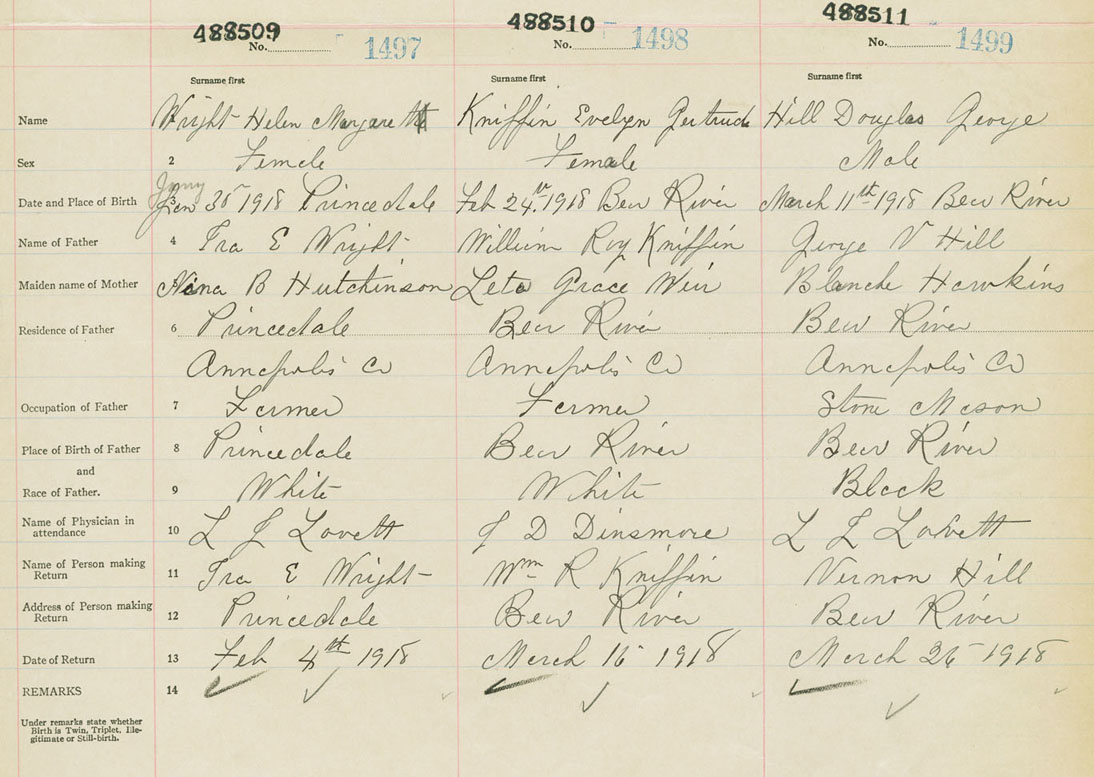 488509 488510 488511
No. 1497 No. 1498 No. 1499
Surname first Surname first Surname first
Name Wright Helen Margaret Kniffin Evelyn Gertrude Hill Douglas George
Sex 2 Female Female Male
Date and Place of Birth 3 Jan 30 1918 Princedale Feb 24th 1918 Bear River March 11th 1918 Bear River
Name of Father 4 Ira E Wright William Roy Kniffin George V Hill
Maiden name of Mother Nina B Hutchinson Leta Grace Weir Blanche Hawkins
Residence of Father 6 Princedale Bear River Bear River
Annapolis Co Annapolis Co Annapolis Co
Occupation of Father 7 Farmer Farmer Stone Mason
Place of Birth of Father 8 Princedale Bear River Bear River
and
Race of Father. 9 White White Black
Name of Physician in
attendance 10 L J Lovett J D Dinsmore L L Lovett
Name of Person making
Return 11 Ira E Wright Wm R Kniffin Vernon Hill
Address of Person making
Return 12 Princedale Bear River Bear River
Date of Return 13 Feb 4th 1918 March 16 1918 March 26 1918
REMARKS 14
Under remarks state whether
Birth is Twin, Triplet, Ille-
gitimate or Still-birth.